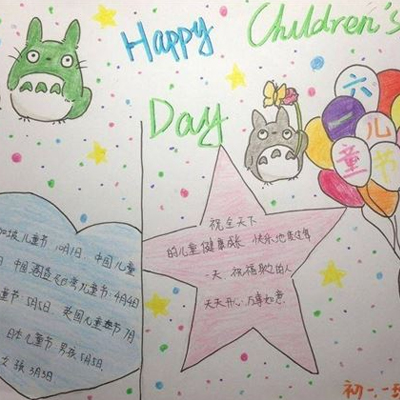 Happy Children's
Day
六
一儿
童节
加坡儿童节:10月1日 中国儿童
中国酒 湾儿童节:4月4日
童节:5月5日 英国儿童节7月
日本儿童节:男孩5月5日
女孩3月3日
祝全天下
的儿童健康成长 快乐地度过每
一天.祝福 的人
天天开心.万事如意.
初一.一班